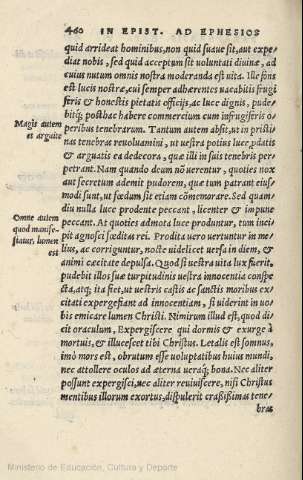 460 IN EPIST. AD EPHESIOS
quid arrideat hominibus, non quid suaue sit, aut expe/
diat nobis, sed quid acceptum sit voluntati diuinæ, ad
cuius nutum omnis nostra moderanda est vita. Ille fons
est lucis nostræ, cui semper adhærentes vacabitis frugi
feris & honestis pietatis officijs, ac luce dignis, pude/
bitq́; posthac habere commercium cum infrugiferis o/
Magis autem
et arguite
peribus tenebrarum. Tantum autem absit, ut in pristi
nas tenebras reuoluamini, ut uestra potius luce
& arguatis ea dedecora, quæ illi in suis tenebris per/
petrant. Nam quando deum nō uerentur, quoties nox
aut secretum ademit pudorem, quæ tum patrant eius/
modi sunt, ut fœdum sit etiam cōmemorare. Sed quam/
diu nulla luce prodente peccant, licenter & impune
Omne autem
quod manife-
statur, lumen
est
peccant. At quoties admota luce produntur, tum inci/
pit agnosci fœditas rei. Prodita vero vertuntur in me/
lius, ac corriguntur, nocte uidelicet uersa in diem, &
animi cæcitate depulsa. Quod si uestra uita lux fuerit,
pudebit illos suæ turpitudinis uestra innocentia conspe
cta, atq; ita fiet, ut uestris castis ac sanctis moribus ex/
citati expergefiant ad innocentiam, si uiderint in uo/
bis emicare lumen Christi. Nimirum illud est, quod di/
cit oraculum, Expergiscere qui dormis & exurge à
mortuis, & illucescet tibi Christus. Letalis est somnus,
imò mors est, obrutum esse uoluptatibus huius mundi,
nec attollere oculos ad æterna ueraq́; bona. Nec aliter
possunt expergisci, nec aliter reuiuiscere, nisi Christus
mentibus illorum exortus, dispulerit crassissimas tene/
bras
Ministerio de Educación, Cultura y Deporte